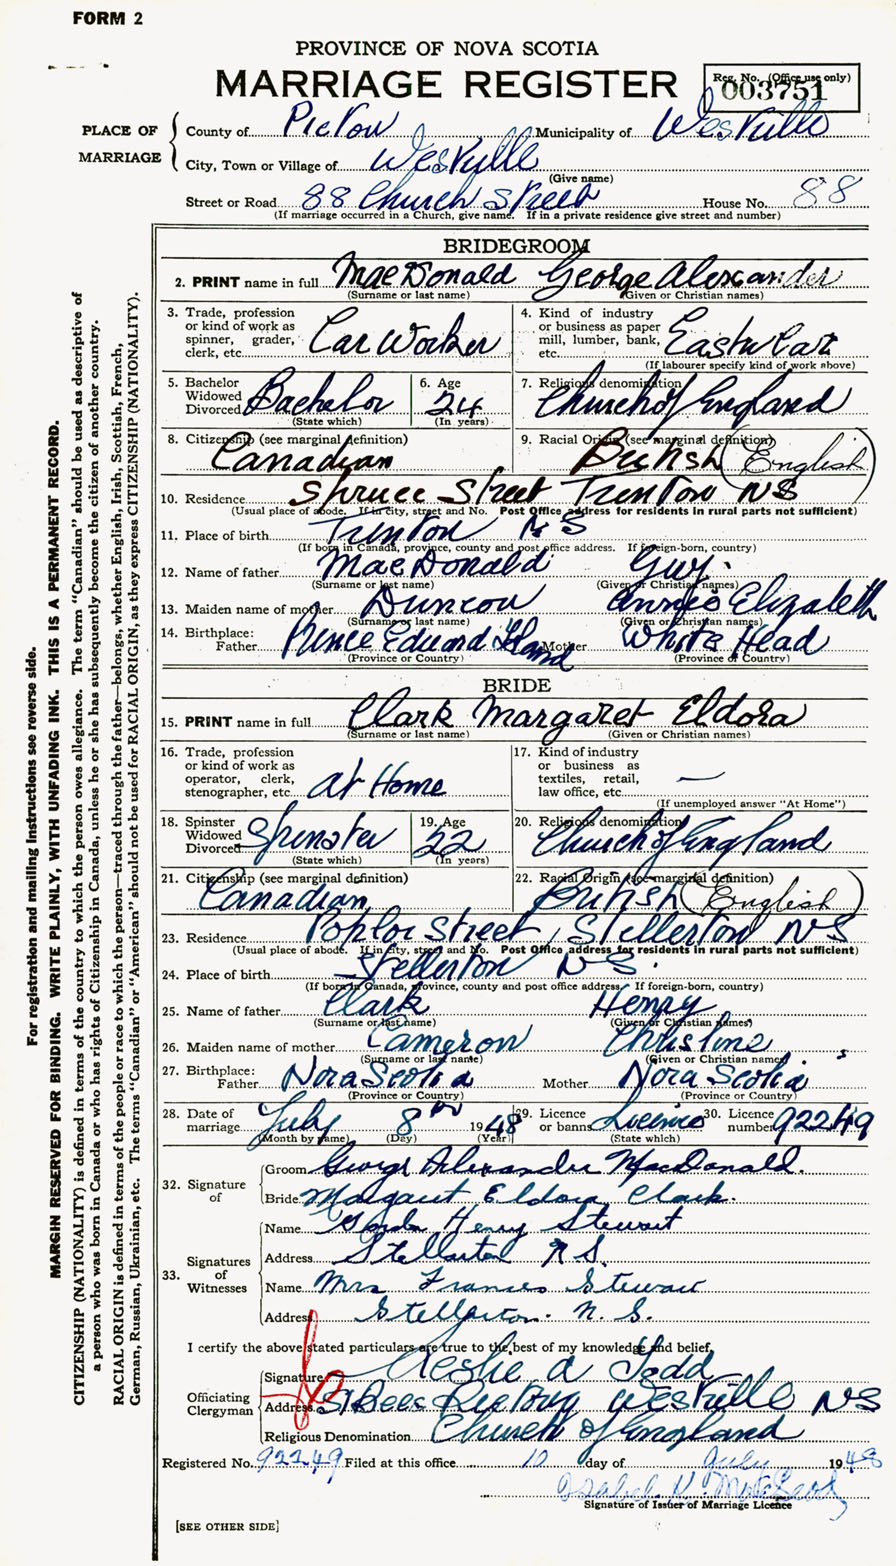 FORM 2
PROVINCE OF NOVA SCOTIA
MARRIAGE REGISTER
Reg. No. (Office use only)
003751
PLACE OF MARRIAGE
County of Pictou Municipality of Westville
City, Town or Village of Westville
(Give name)
Street or Road 88 Church Street House No. 88
(If marriage occurred in a Church, give name. If in a private residence give street and number)
BRIDEGROOM
2. PRINT name in full MacDonald George Alexander
(Surname or last name) (Given or Christian names)
3. Trade, profession or kind of work as spinner, grader, clerk, etc. Car Worker
4. Kind of industry or business as paper mill, lumber, bank, etc. Eastn Car
(If labourer specify kind of work above)
5. Bachelor Widowed Divorced Bachelor
(State which)
6. Age 24
(In years)
7. Religious denomination Church of England
8. Citizenship (see marginal definition) Canadian
9. Racial Origin (see marginal definition) British (English)
10. Residence Spruce Street Trenton NS
(Usual place of abode. If in city, street and No. Post Office address for residents in rural parts not sufficient)
11. Place of birth Trenton N S
(If born in Canada, province, county and post office address. If foreign-born, country)
12. Name of father MacDonald Guy
(Surname or last name) (Given or Christian names)
13. Maiden name of mother Annie Elizabeth
(Surname or last name) (Given or Christian names)
14. Birthplace: Father Prince Edward Island Mother White Head
(Province or Country) (Province or Country)
BRIDE
15. PRINT name in full Clark Margaret Eldora
(Surname or last name) (Given or Christian names)
16. Trade, profession or kind of work as operator, clerk, stenographer, etc. At Home
17. Kind of industry or business as textiles, retail, law office, etc. —
(If unemployed answer "At Home")
18. Spinster Widowed Divorced Spinster
(State which)
19. Age 22
(In years)
20. Religious denomination Church of England
21. Citizenship (see marginal definition) Canadian
22. Racial Origin (see marginal definition) British (English)
23. Residence Poplar Street, Stellerton NS
(Usual place of abode. If in city, street and No. Post Office address for residents in rural parts not sufficient)
24. Place of birth Stellerton N S.
(If born in Canada, province, county and post office address. If foreign-born, country)
25. Name of father Clark Henry
(Surname or last name) (Given or Christian names)
26. Maiden name of mother Cameron Christine
(Surname or last name) (Given or Christian names)
27. Birthplace: Father Nova Scotia Mother Nova Scotia
(Province or Country) (Province or Country)
28. Date of marriage July 8th 1948
(Month by name) (Day) (Year)
29. Licence or banns Licence
(State which)
30. Licence number 92249
32. Signature of
Groom George Alexander MacDonald.
Bride Margaret Eldora Clark.
33. Signatures of Witnesses
Name Henry Stewart
Address Stellarton N.S.
Name Mrs Frances Stewart
Address Stellarton. N. S.
I certify the above stated particulars are true to the best of my knowledge and belief.
Officiating Clergyman
Signature Leslie A Todd
Address St Bees Rectory Westville NS
Religious Denomination Church of England
Registered No. 92249 Filed at this office 10 day of July 1948
Isabel
Signature of Issuer of Marriage Licence
[SEE OTHER SIDE]
For registration and mailing instructions see reverse side.
MARGIN RESERVED FOR BINDING. WRITE PLAINLY, WITH UNFADING INK. THIS IS A PERMANENT RECORD.
CITIZENSHIP (NATIONALITY) is defined in terms of the country to which the person owes allegiance. The term "Canadian" should be used as descriptive of
a person who was born in Canada or who has rights of Citizenship in Canada, unless he or she has subsequently become the citizen of another country.
RACIAL ORIGIN is defined in terms of the people or race to which the person—traced through the father—belongs, whether English, Irish, Scottish, French,
German, Russian, Ukrainian, etc. The terms "Canadian" or "American" should not be used for RACIAL ORIGIN, as they express CITIZENSHIP (NATIONALITY).